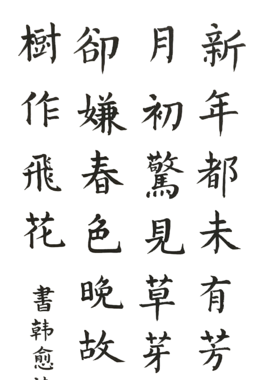 新年都未有芳
月初驚見草芽
卻嫌春色晚故
樹作飛花
書韓愈